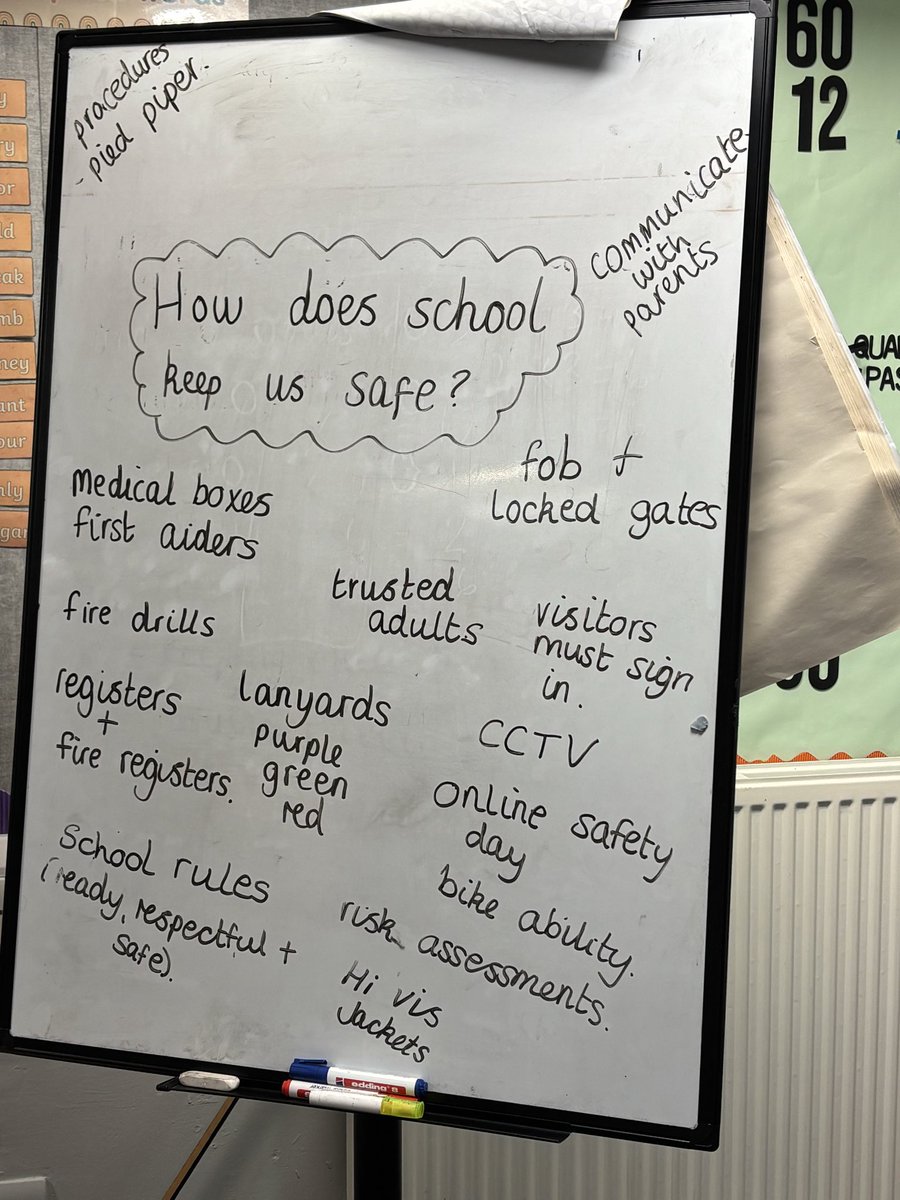 procedures
- pied piper.
communicate
with
parents
How does school
keep us safe?
fob +
locked gates
medical boxes
first aiders
trusted
adults
fire drills
visitors
must sign
in.
registers
+
fire registers.
lanyards
purple
green
red
CCTV
online safety
day
School rules
(ready, respectful +
safe).
bike ability.
risk assessments.
Hi vis
Jackets
60
12
edding 8